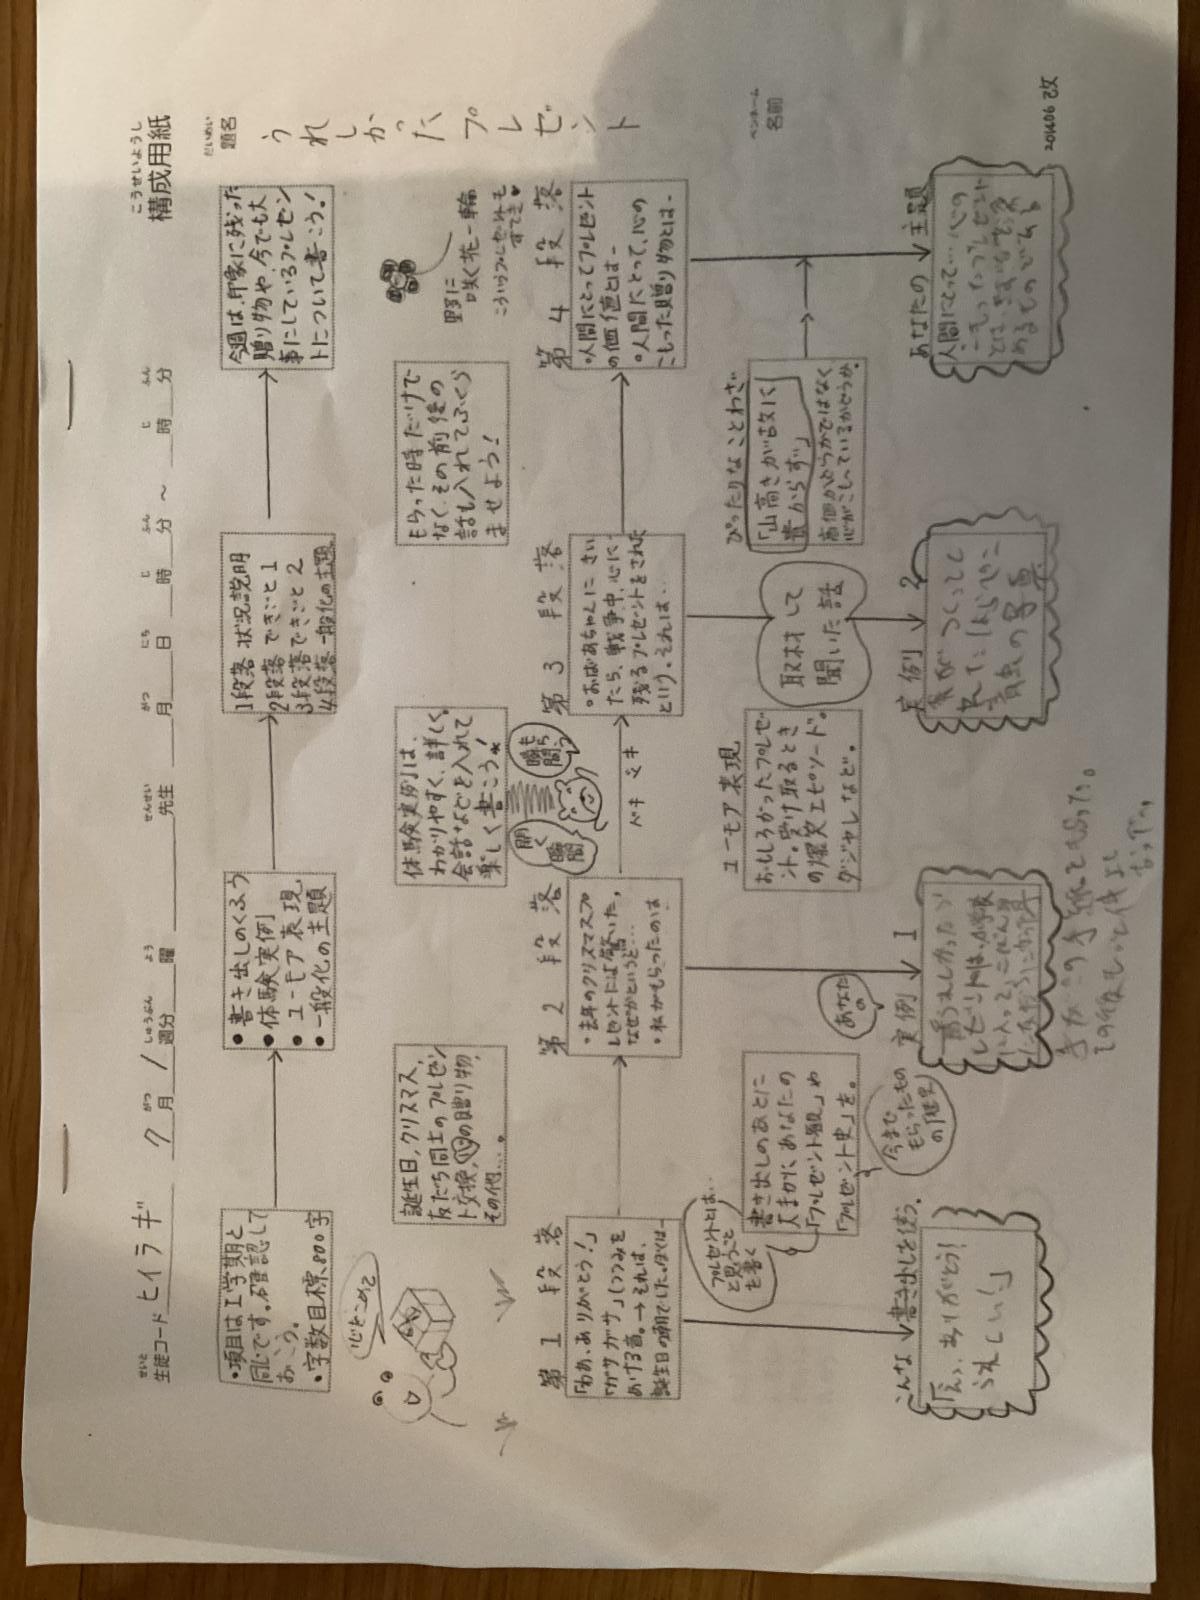 こうせいようし
構成用紙
せいと
生徒コード ヒイラギ 7 がつ月 1 しゅうぶん週分 よう曜 せんせい先生 がつ月 にち日 じ時 ふん分 ～ じ時 ふん分
だいめい
題名
うれしかったプレゼント
・項目は1学期と
同じです。確認して
おこう。
・字数目標800字
● 書き出しのくふう
● 体験実例
● ユーモア表現
● 一般化の主題
1段落 状況説明
2段落 できごと1
3段落 できごと2
4段落 一般化の主題
今週は、印象に残った
贈り物や、今でも大
事にしているプレゼン
トについて書こう！
心をこめて
誕生日、クリスマス、
友だち同士のプレゼン
ト交換、心の贈り物、
その他…。
体験実例は、
わかりやすく、詳しく。
会話などを入れて
楽しく書こう！
開く
瞬間
もらう
瞬間
もらった時だけで
なく、その前後の
話も入れてふくら
ませよう！
野に
咲く花一輪
こういうプレゼントも
すてき♥
第1段落
「わあ、ありがとう！」
「ガサガサ」（つつみを
あける音。→それは、
誕生日の朝でした。ぼくは―
第2段落
・去年のクリスマスプ
レゼントには驚いた。
なぜかというと…
・私がもらったのは…
ドキ ドキ
第3段落
・おばあちゃんにきい
たら、戦争中、心に
残るプレゼントをされた
という。それは…
第4段落
・人間にとってプレゼント
の価値とは―
・人間にとって、心の
こもった贈り物とは―
プレゼントとは…
と思うこと
を書く
書き出しのあとに
大まかにあなたの
「プレゼント観」や
「プレゼント史」を。
今まで
もらったもの
の歴史
ユーモア表現
おもしろかったプレゼ
ント。受け取るとき
の爆笑エピソード。
ダジャレなど。
取材して
聞いた話
ぴったりなことわざ
「山高きが故に
貴からず」
高価かどうかではなく
心がこもっているかどうか。
ペンネーム
名前
こんな書き出しを使う。
「えっ、ありがとう！
うれしい！」
あなたの
実例1
一番うれしかったプ
レゼントは、小学校
に入って
手がみの手紙ともらった。
実例2
青虫の写真
あなたの主題
人間にとって…心の
こもったプレゼント
とは、
201606改